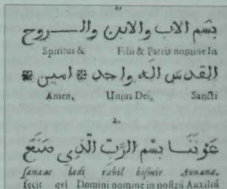 بسم الاب والابن والــــروح
Spiritus & Filii & Patris nomine In
القدس اله واحد ❋ امين ❋
Amen, Unius Dei, Sancti
2.
عوننا بسم الرب الذي صنع
sanaae ladi rabil bismir Aunana.
fecit qui Domini nomine in nostrū Auxiliū